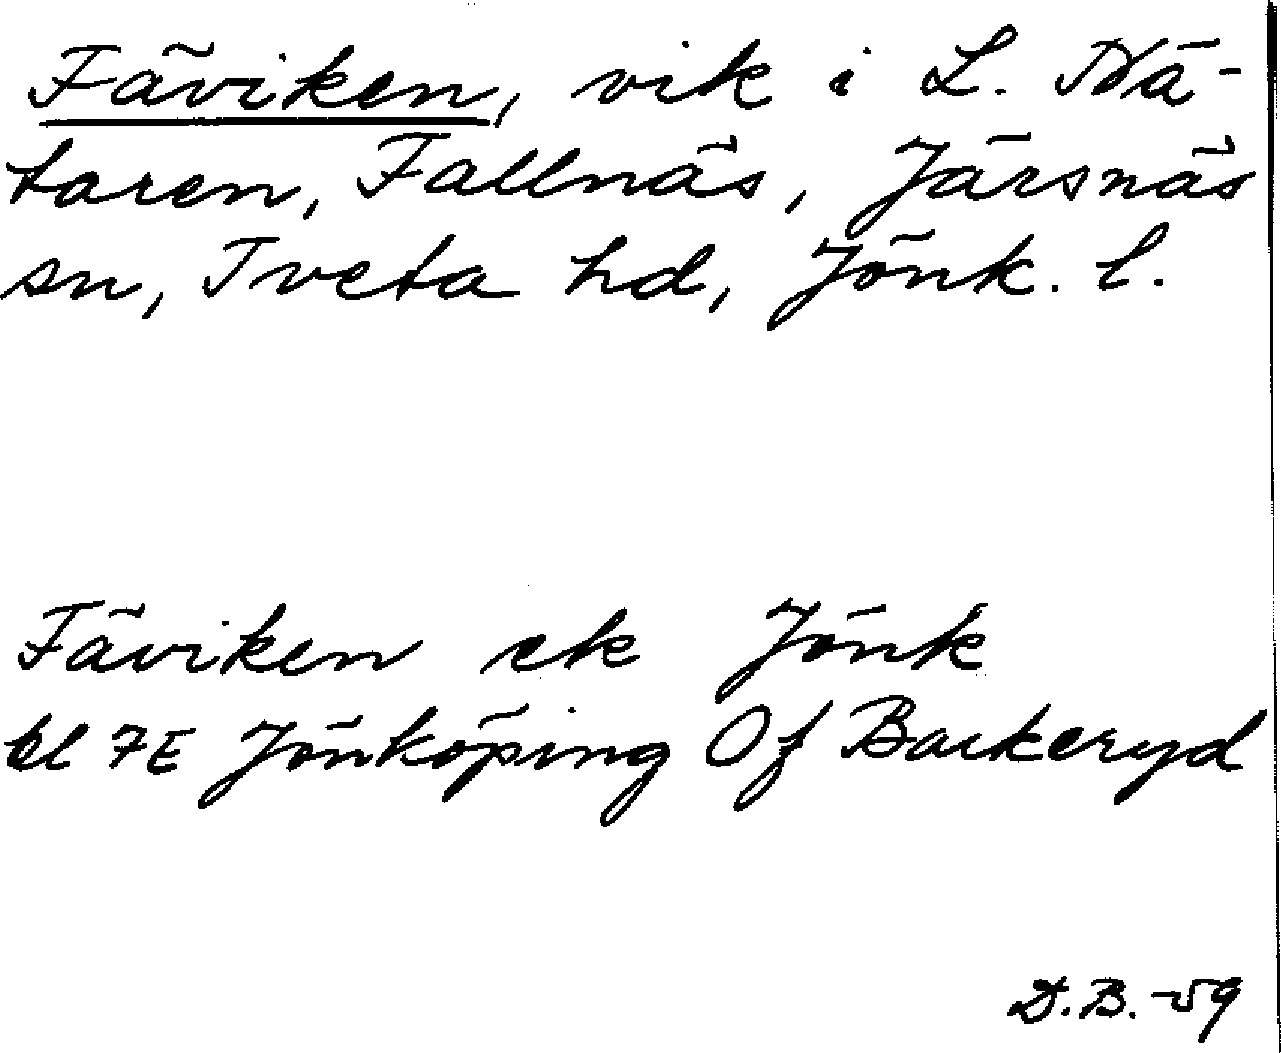 Fäviken, vik i L. Nä-
taren, Fallnäs, Järsnäs
sn, Tveta hd, Jönk. l.
Fäviken ek Jönk
bl 7E Jönköping Of Barkeryd
D.B. -59